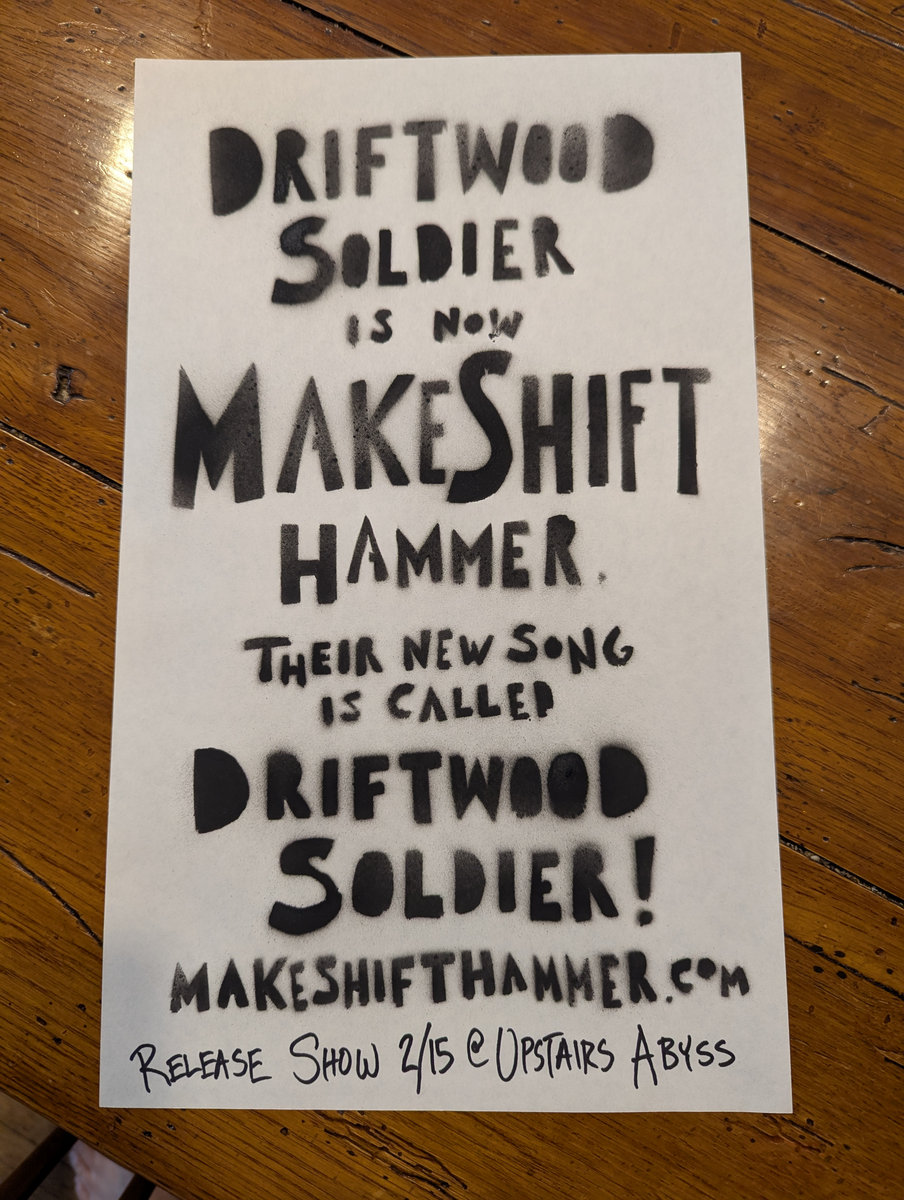 DRIFTWOOD
SOLDIER
IS NOW
MAKESHIFT
HAMMER.
THEIR NEW SONG
IS CALLED
DRIFTWOOD
SOLDIER!
MAKESHIFTHAMMER.COM
RELEASE SHOW 2/15 @ UPSTAIRS ABYSS